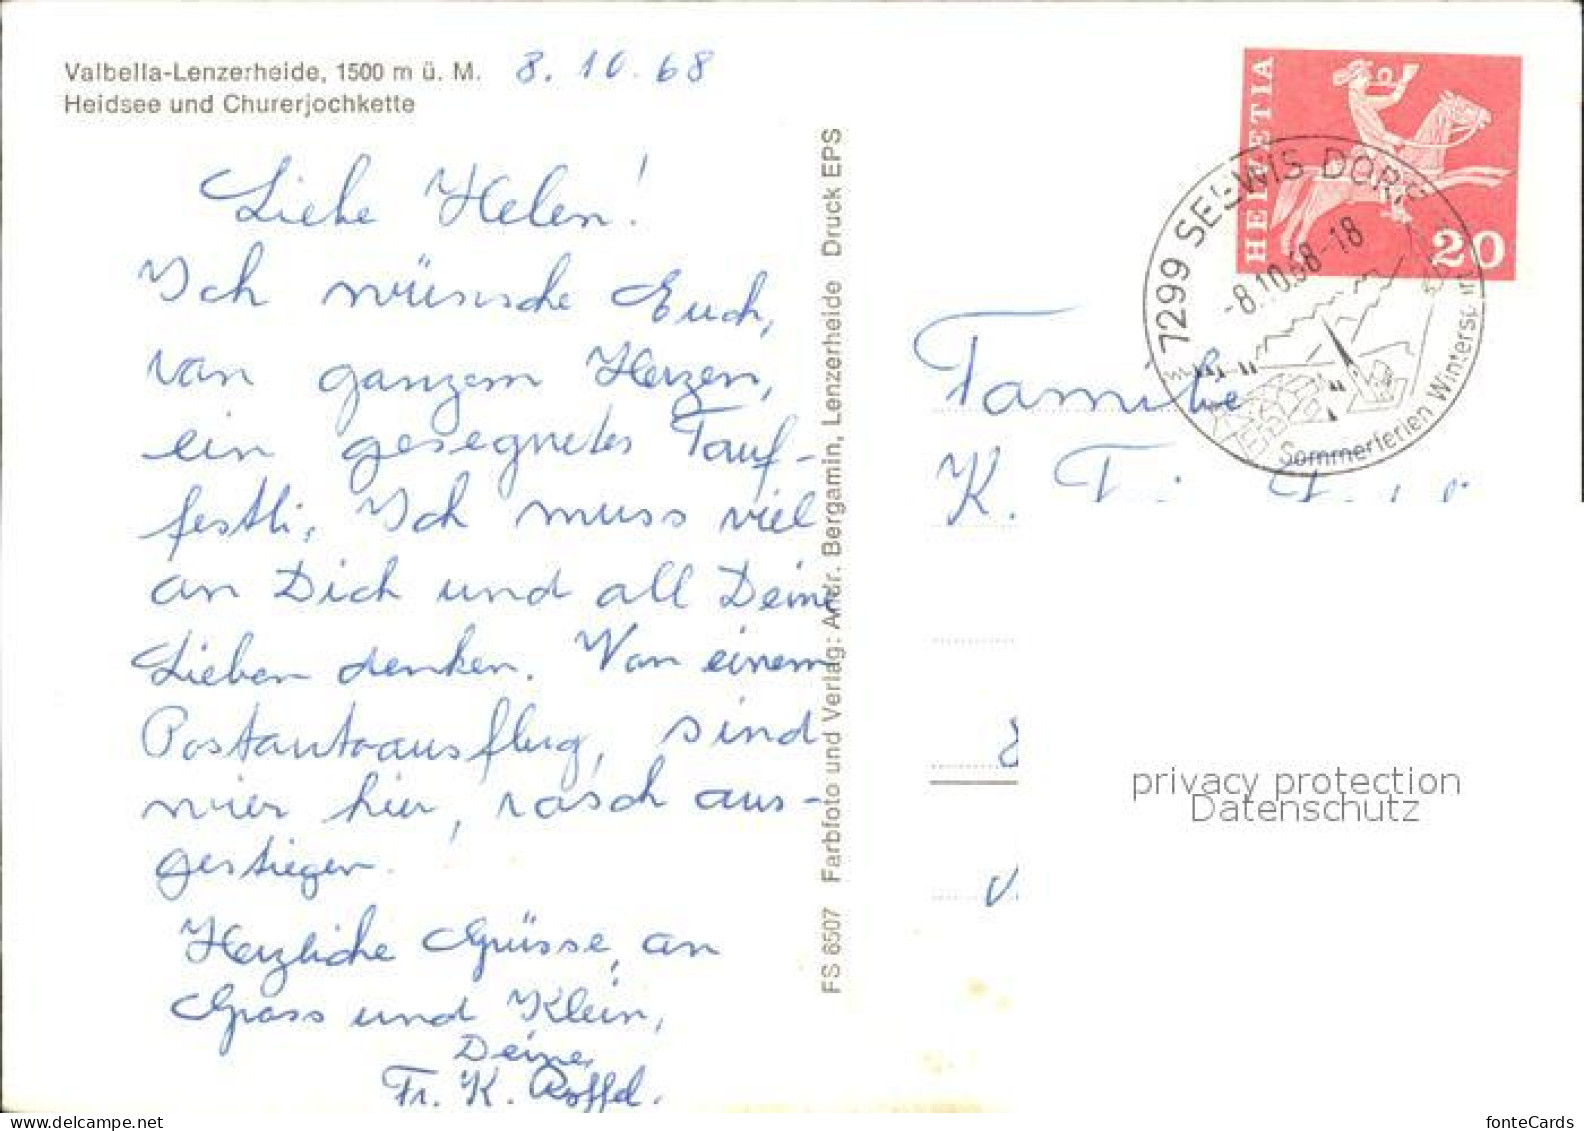 Valbella-Lenzerheide, 1500 m ü. M.
Heidsee und Churerjochkette
8. 10. 68
Liebe Helen!
Ich wünsche Euch,
von ganzem Herzen,
ein gesegnetes Tauf-
festli, Ich muss viel
an Dich und all Deine
Lieben denken. Von einem
Postautoausflug, sind
wier hier, rasch aus-
gestiegen.
Herzliche Grüsse, an
Gross und Klein,
Deine
Fr. K.
FS 6507 Farbfoto und Verlag: Andr. Bergamin, Lenzerheide Druck EPS
HELVETIA
20
7299 SEEWIS DORF
-8.10.68-18
Sommerferien Wintersport
Familie
K.
privacy protection
Datenschutz
fonteCards